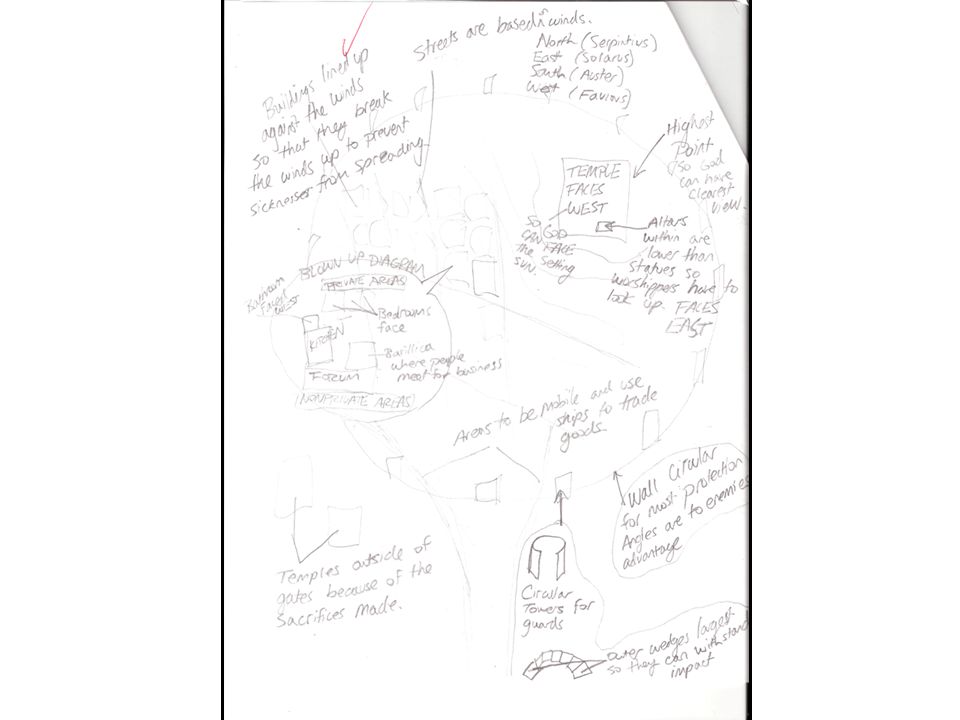 Streets are based on winds.
North (Serpintius)
East (Solarus)
South (Auster)
West (Favious)
Buildings lined up
against the winds
so that they break
the winds up to prevent
sicknesses from spreading
Highest
Point
so God
can have
clearest
view.
TEMPLE
FACES
WEST
SO GOD
CAN FACE
the setting
SUN.
Altars
within are
lower than
statues so
worshippers have to
look up. FACES
EAST
BLOWN UP DIAGRAM
PRIVATE AREAS
Faces
WEST
Bedrooms
face
KITCHEN
Basillica
where people
meet for business
FORUM
NONPRIVATE AREAS
Areas to be mobile and use
ships to trade
goods
Wall Circular
for most protection
Angles are to enemies
advantage
Temples outside of
gates because of the
Sacrifices made.
Circular
Towers for
guards
outer wedges largest
so they can withstand
impact